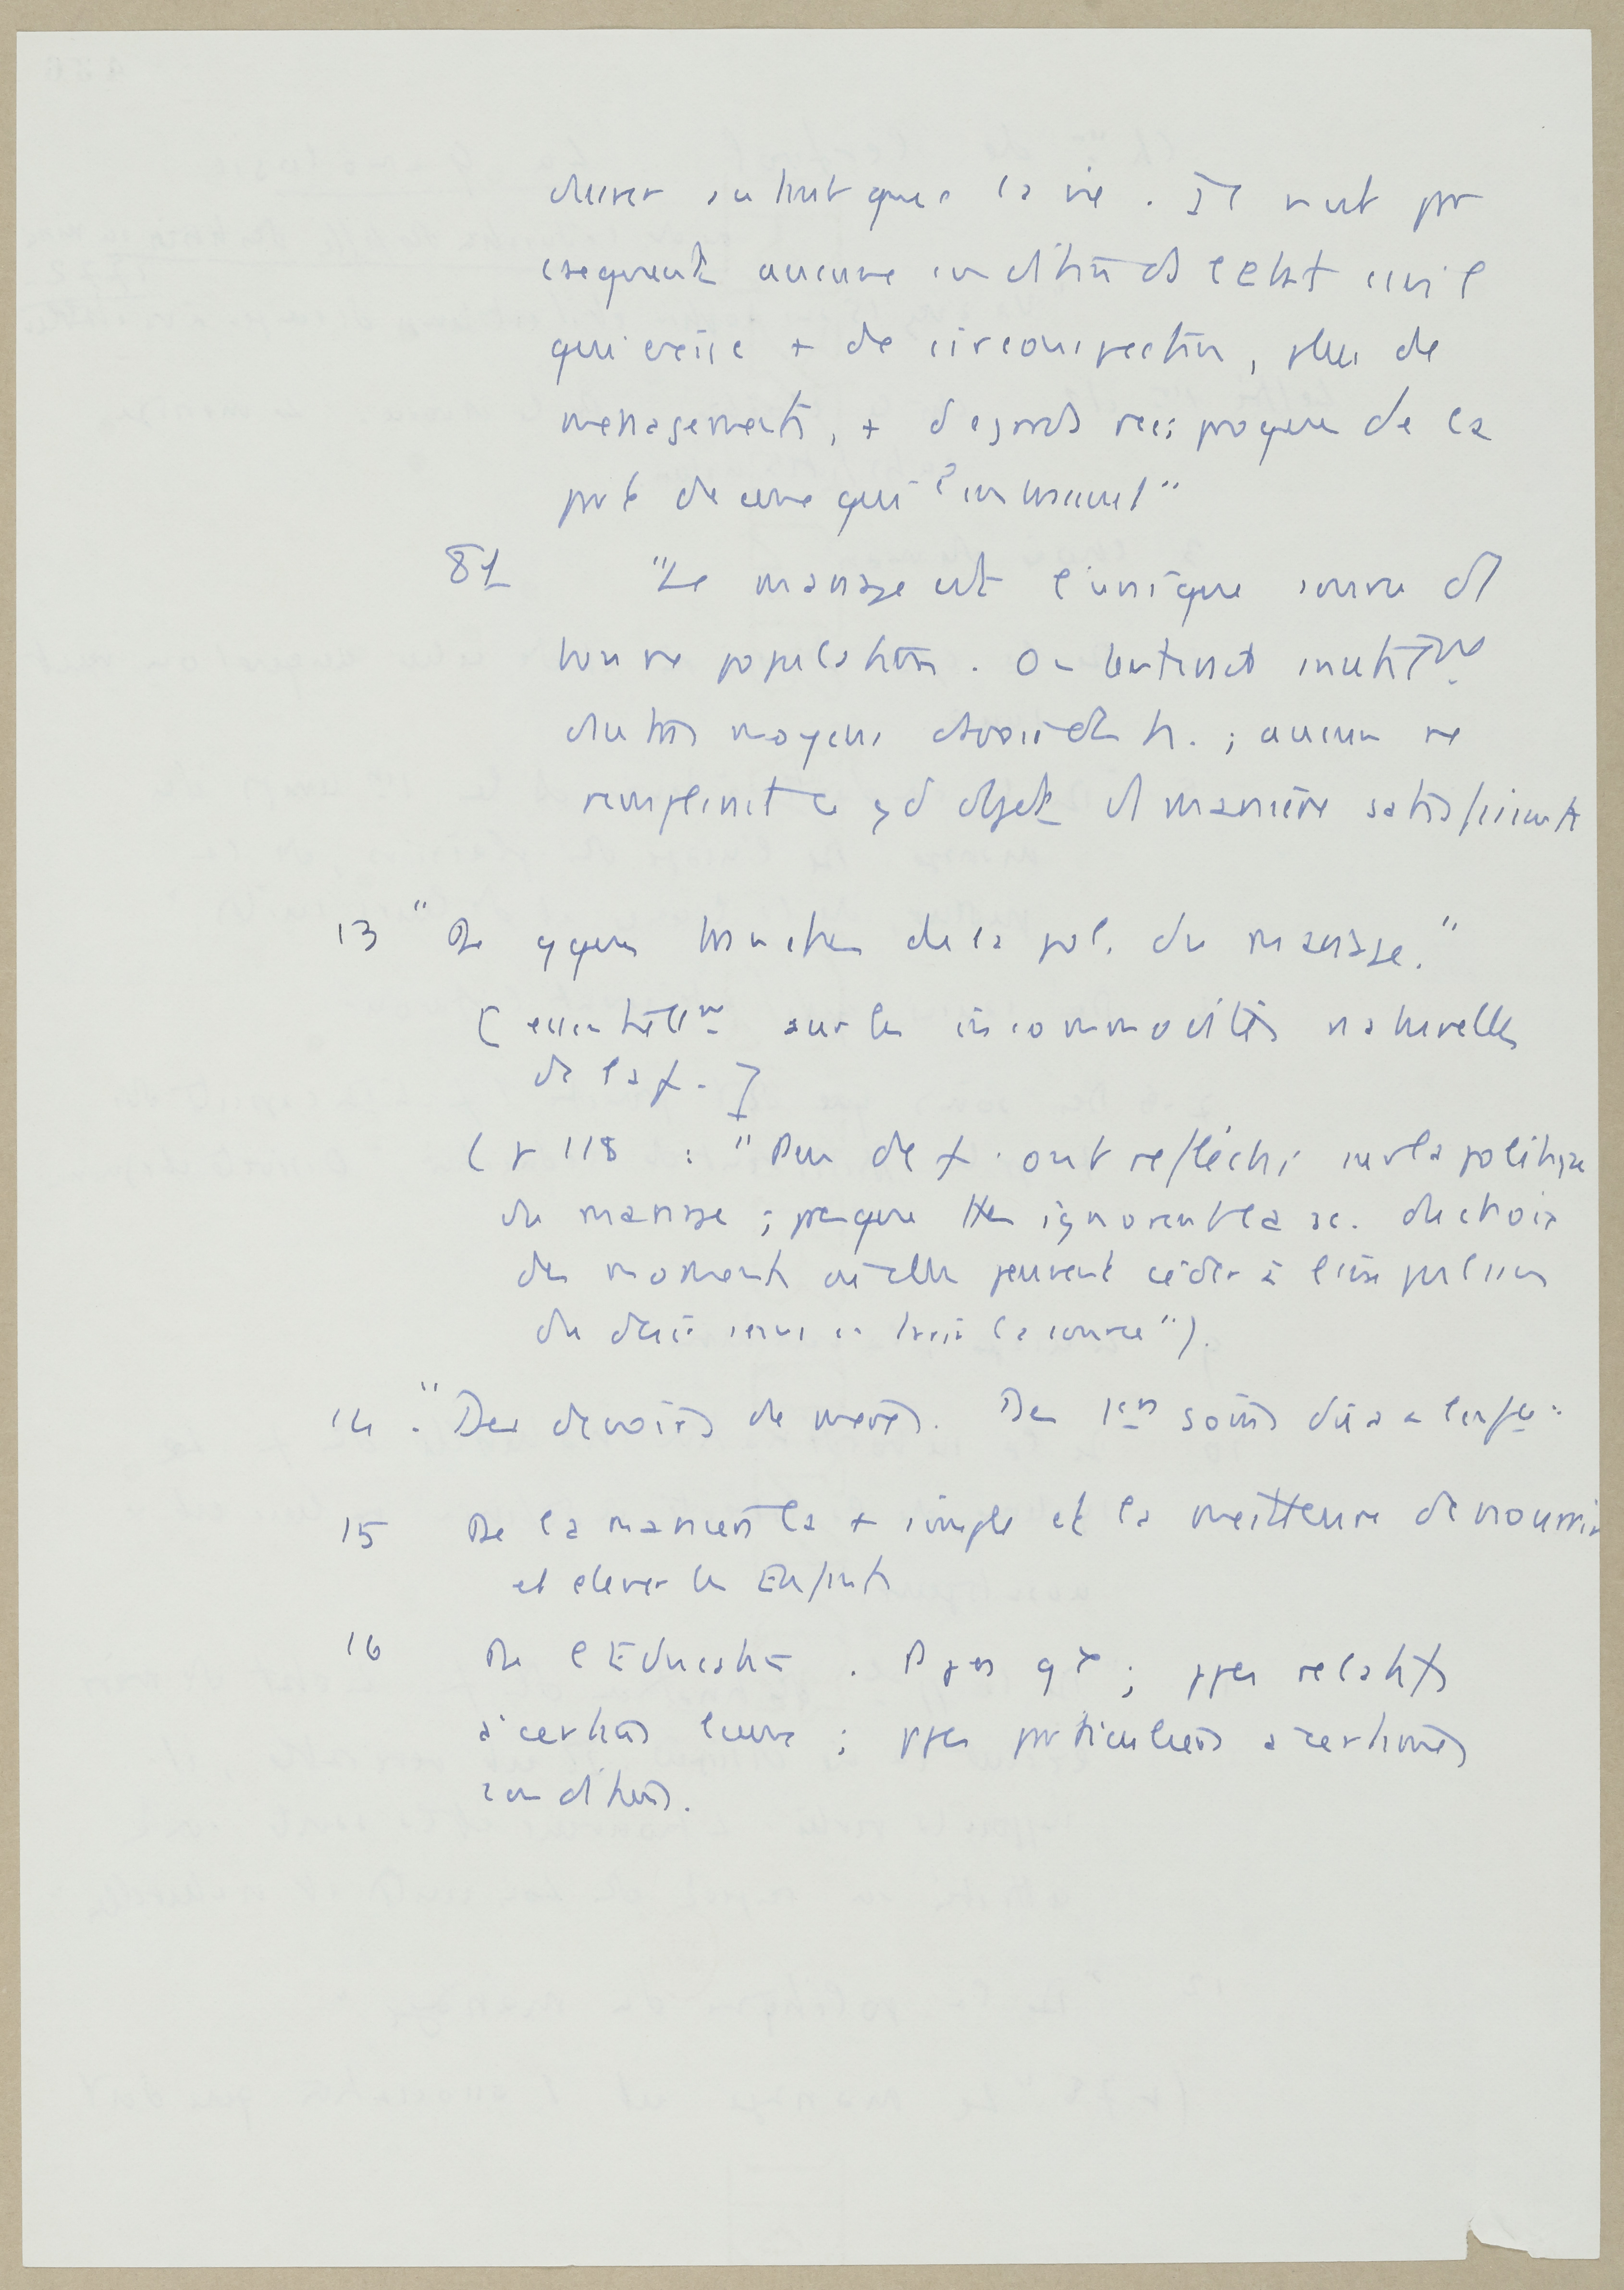 durer autant que la vie. Il n'est par
csequent aucune condition de l'Etat civil
qui exige + de circonspection, plus de
menagements, + d'egards reciproques de la
part de ceux qui
81 "Le mariage est l'unique source de
bonne population. On tenteroit inutilemt
d'autres moyens ; aucun ne
rempliroit ce gd objet de manière satisfaisante
13 "De qques branches de la pol. du mariage."
[essentiellmt sur les incommodités naturelles
de la f.]
(p 118 : "Peu de f. ont reflechi sur la politique
du mariage ; presque ttes ignorent la sc. du choix
des moments où elles peuvent céder à l'impulsion
du desir sans en tarir la source").
14. "Des devoirs de meres. Des 1ers soins dus a
15 De la maniere la + simple et la meilleure de nourrir
et elever les Enfants
16 De l'Education. Ppes gx ; ppes relatifs
à certains lieux ; ppes particuliers à certaines
conditions.